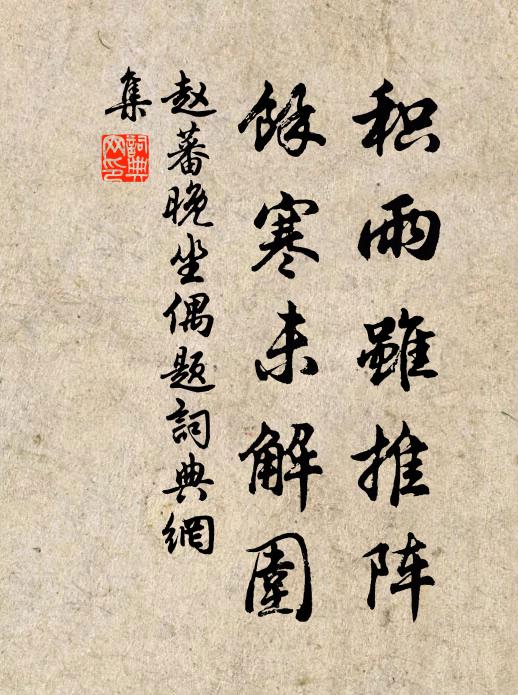 积雨雖推阵
餘寒未解圍
赵蕃晚坐偶题詞典網
集
詞典
网印